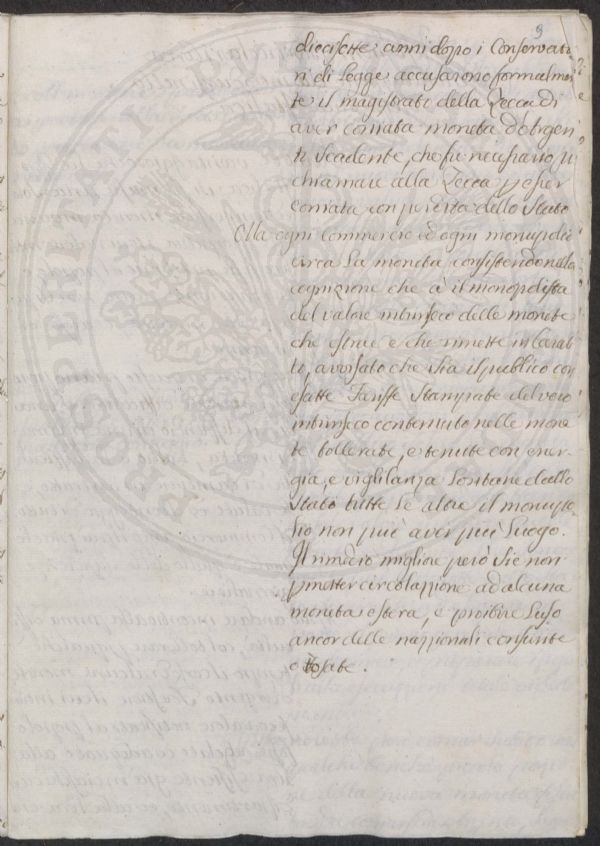 9
diecisette anni dopo i Conservato
ri di Legge accusarono formalmen
te il magistrato della Zecca di
aver coniata moneta d'argen
to scadente, che fù necessario ri
chiamare alla Zecca p esser
coniata con perdita dello Stato
Ma ogni commercio ed ogni monopolio
circa La moneta consistendo nella
cognizione che à il monopolista
del valore intrinseco delle monete
che estrae e che rimette in
avvisato che sia il pubblico con
esatte Tariffe Stampate del vero
intrinseco contenuto nelle mone
te tollerate, e tenute con ener
gia, e vigilanza Lontane dallo
Stato tutte Le altre il monopo
lio non può aver più Luogo.
Il rimedio migliore però si è non
pmetter circolazzione ad alcuna
moneta estera, e proibire L'uso
ancor delle nazzionali consunte
o tosate.
PROSPERITATI